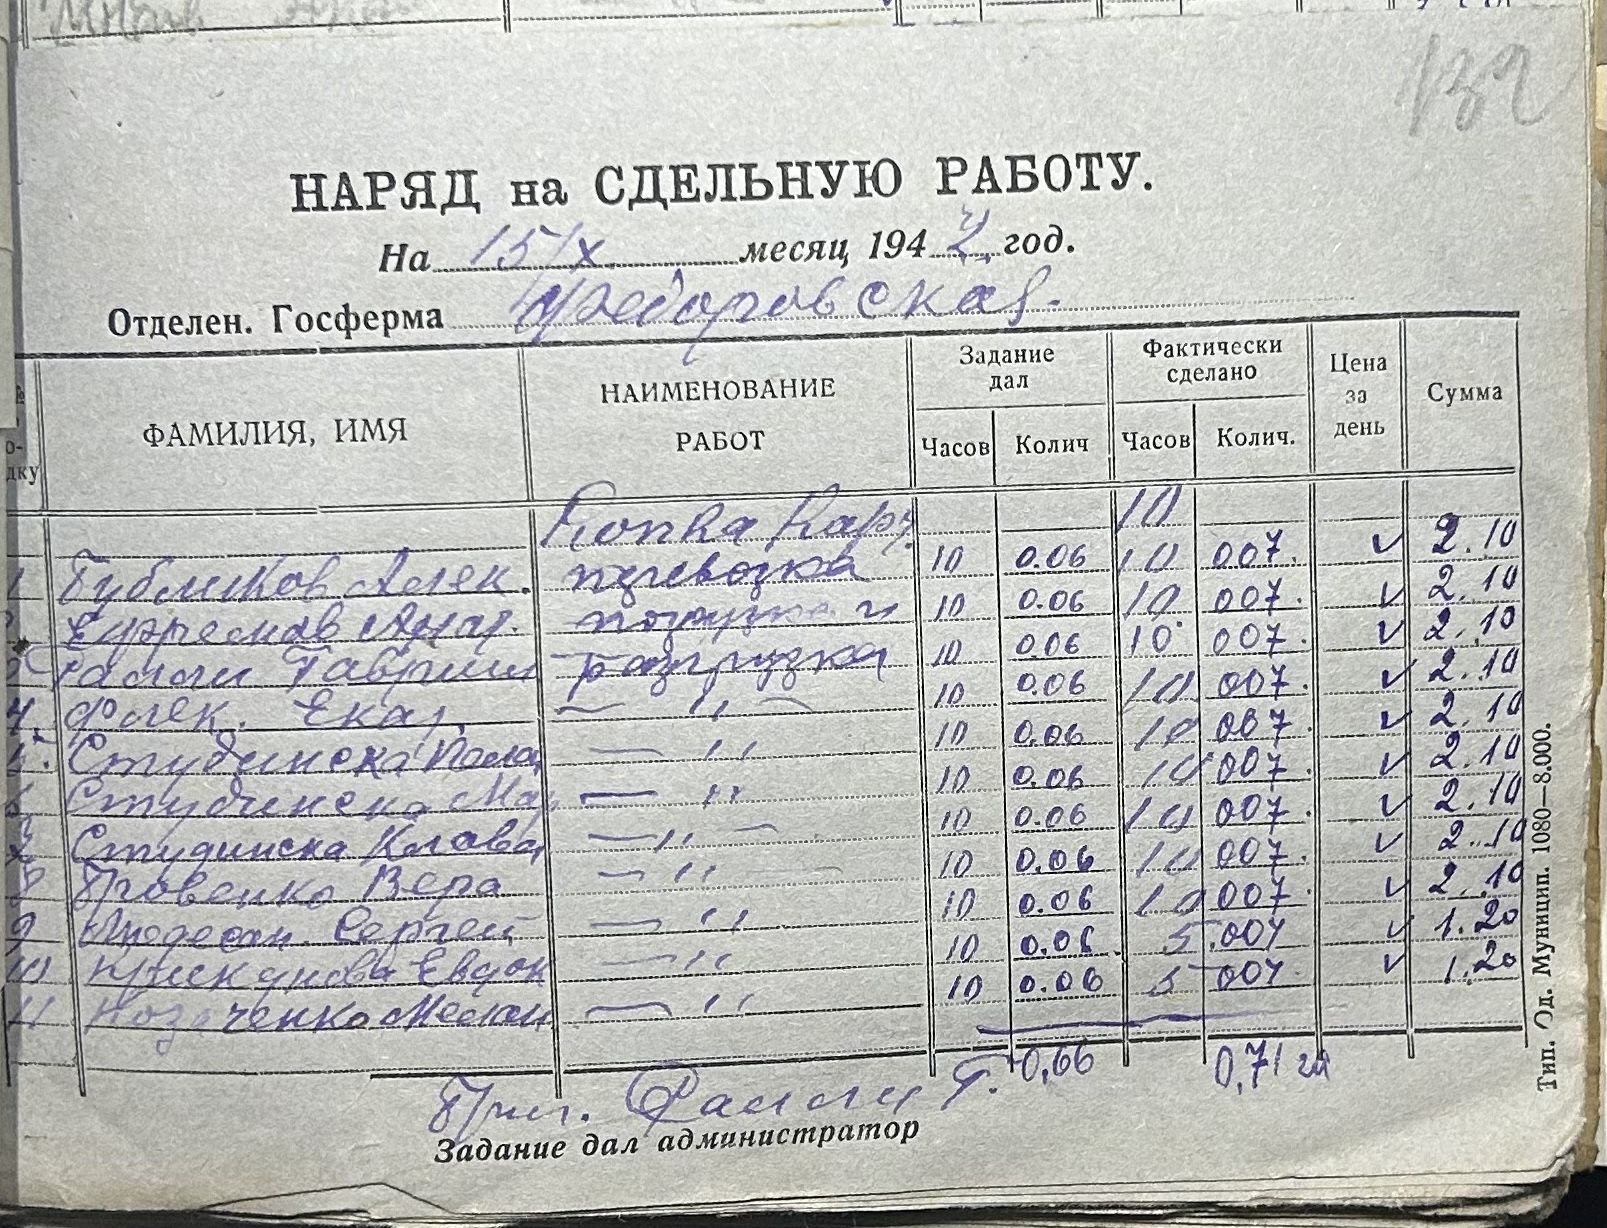 132
НАРЯД на СДЕЛЬНУЮ РАБОТУ.
На 15/X месяц 1942 год.
Отделен. Госферма Федоровская
ФАМИЛИЯ, ИМЯ НАИМЕНОВАНИЕ РАБОТ Задание дал Часов Колич Фактически сделано Часов Колич. Цена за день Сумма
Копка Кар. 10
1 Бубликов Алек. перевозка 10 0.06 10 007. v 2.10
Ефремов Анат. погрузка и 10 0.06 10 007. v 2.10
3 Фамли Гаврил разгрузка 10 0.06 10 007. v 2.10
4. Флек. Екат. — " — 10 0.06 10 007. v 2.10
5. Студинска Пелаг — " 10 0.06 10 007 v 2.10
6 Студинска Мар — " 10 0.06 10 007 v 2.10
7 Студинска Клава — " — 10 0.06 10 007. v 2.10
8 Вера — " — 10 0.06 10 007. v 2.10
9 Сергей — " 10 0.06 10 007. v 2.10
10 Евдок — " 10 0.06 5 004 v 1.20
11 Козаченко Мелан — " 10 0.06 5 004 v 1.20
0,66 0,71 га
Бриг. Фамли Г.
Задание дал администратор
Тип. Од. Муницип. 1080—8.000.